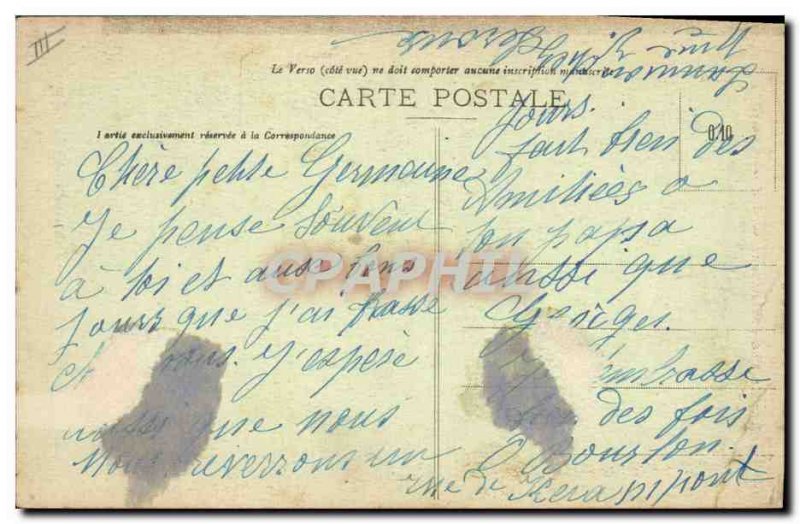 III
Le Verso (côté vue) ne doit comporter aucune inscription manuscrite
CARTE POSTALE
Partie exclusivement réservée à la Correspondance
0.10
CPAPHIL
Chère petite Germaine
Je pense souvent
à toi et aux fins
jours que j'ai passé
vous. J'espère
aussi que nous
nous reverrons un
jours.
fait bien des
amitiées a
ton papa
ainssi que
Georges.
embrasse
bien des fois
Bourlon.
rue de Kerampont
Lannion